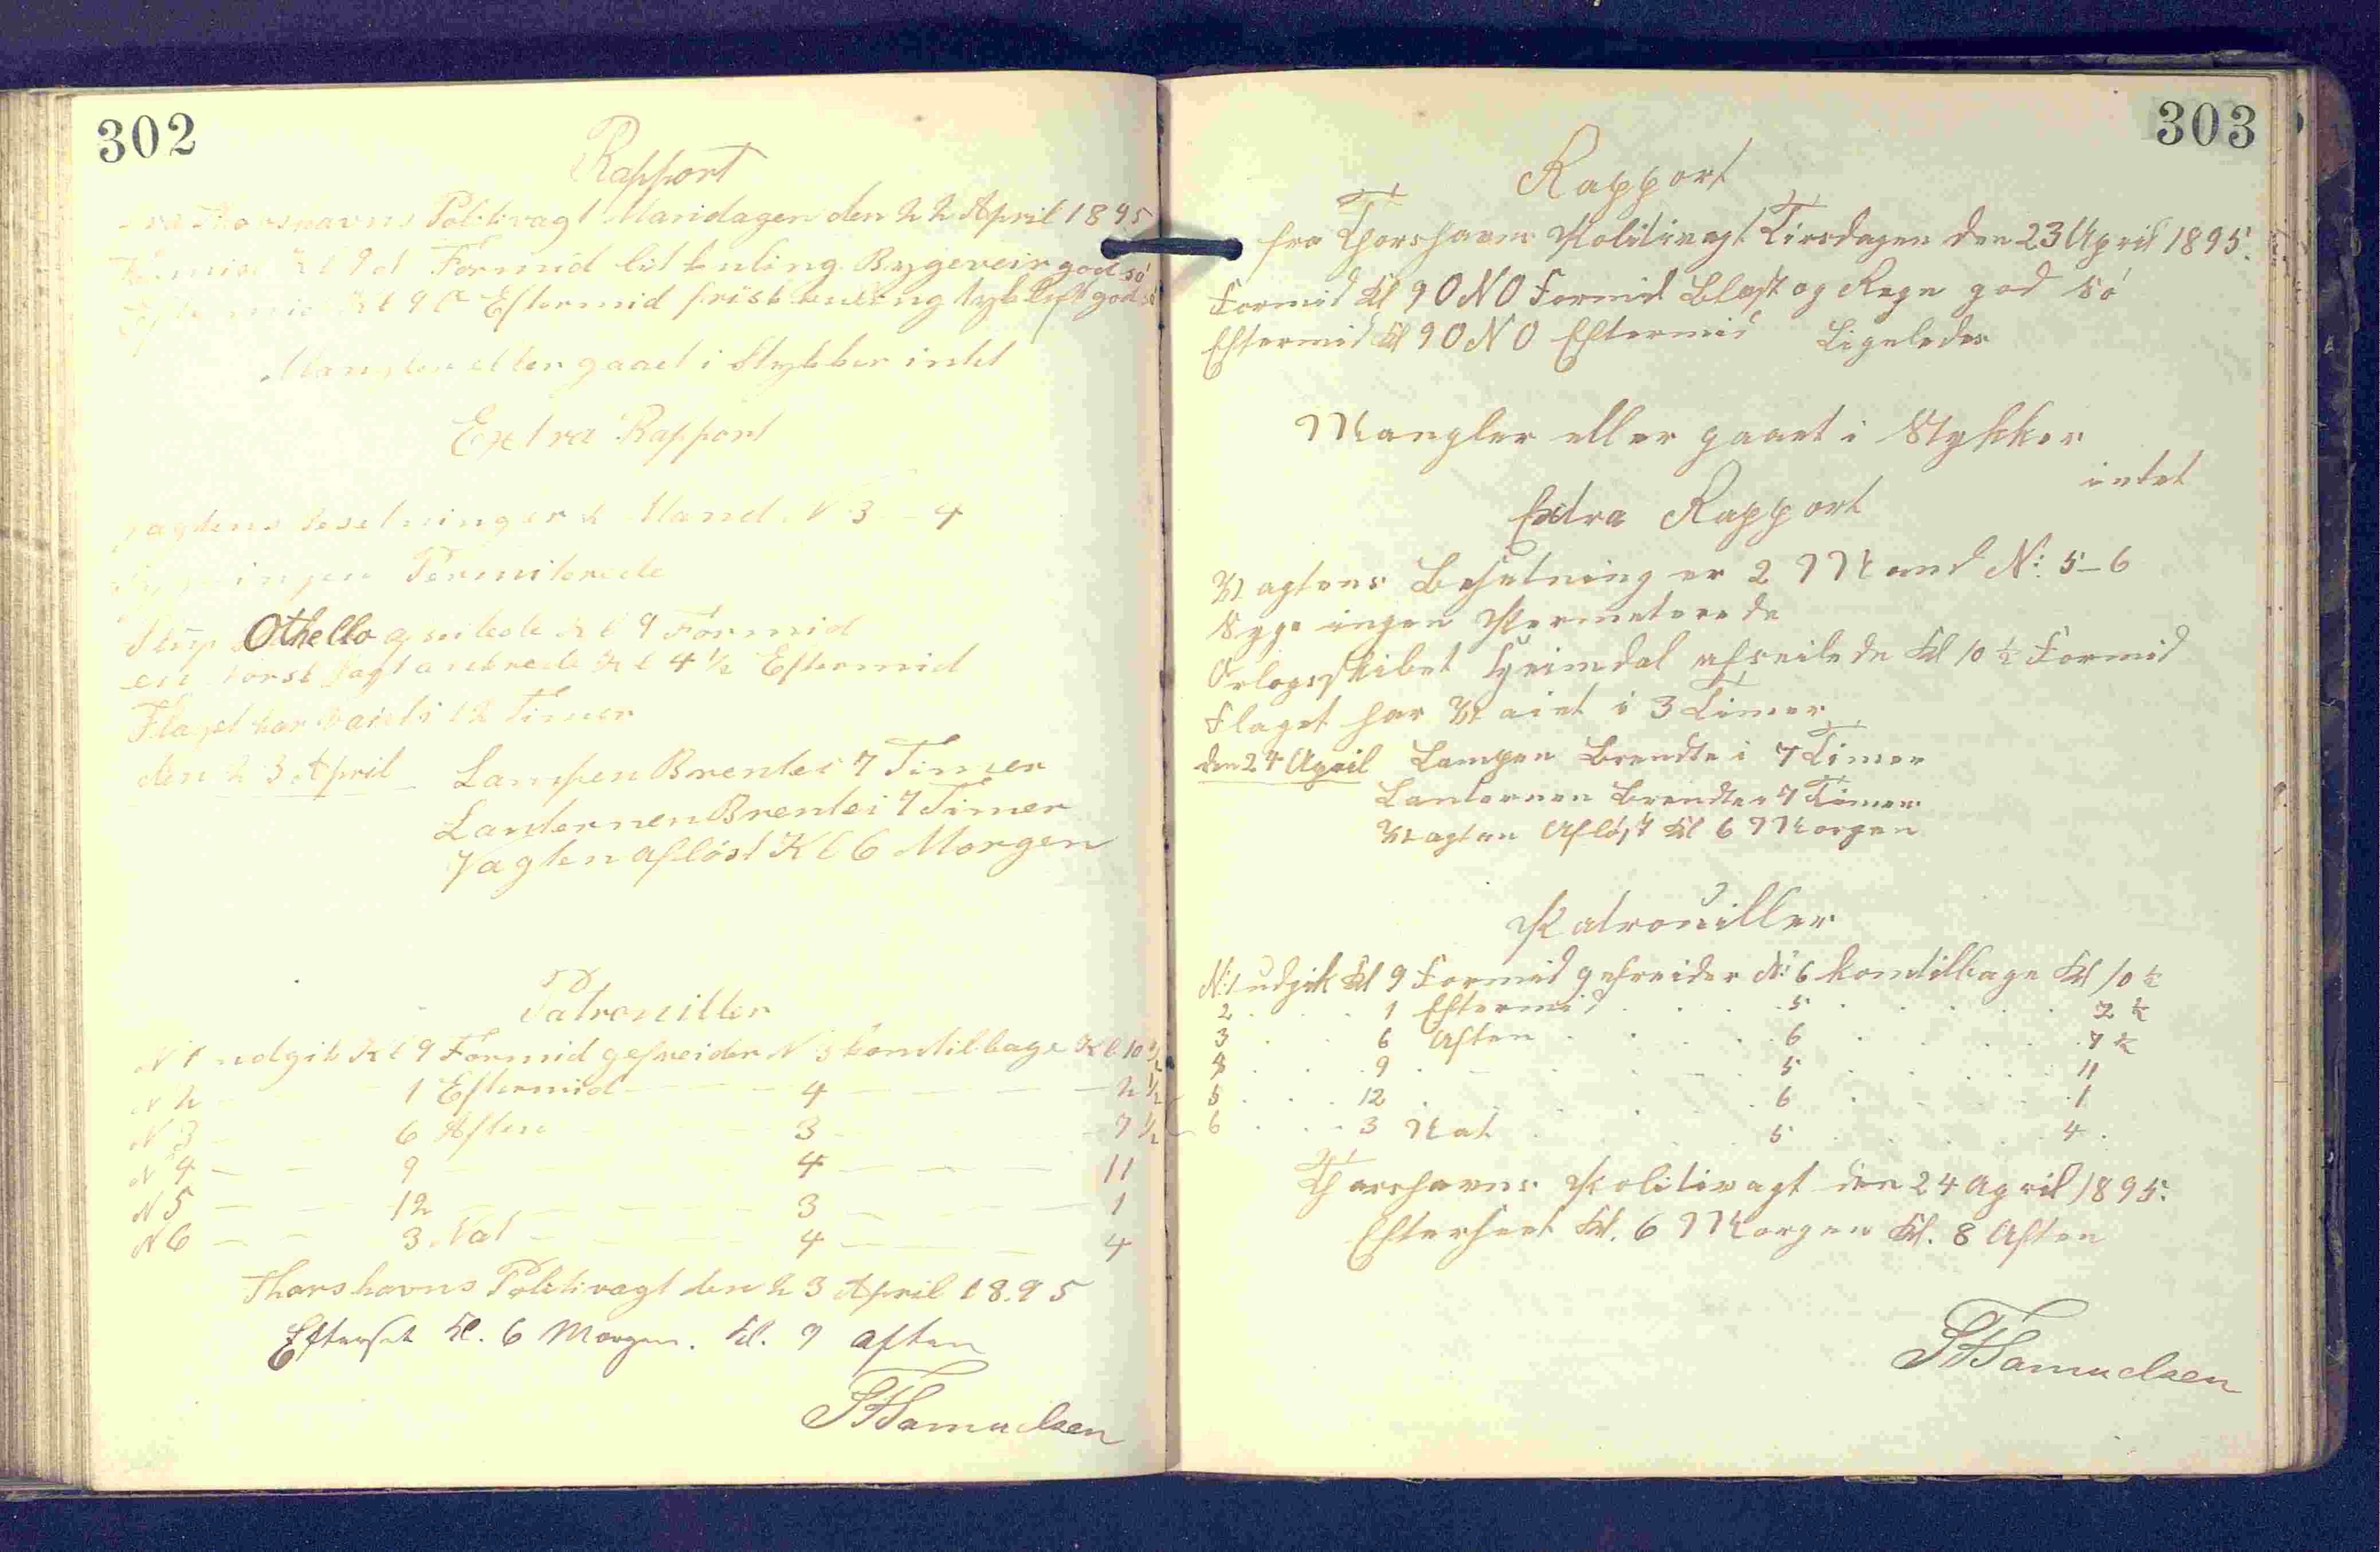 302
Rapport
fra Thorshavns Politivagt Mandagen den 22 April 1895
Formid Kl 9 Formid lit kuling Bygeveir god só
Eftermid Kl 9 O Eftermid frisk kuling tyk luft god só
Mangler eller gaaet i Stykker intet
Extra Rapport
Vagtens besetning er 2 Mand N 3 - 4
Syge ingen Permiterede
Slup Othello afseilede Kl 9 Formid
en Norsk Jagt ankrede Kl 4 1/2 Eftermid
Flaget har vaiet i 12 Timer
den 23 April Lampen Brente i 7 Timer
Lanternen Brente i 7 Timer
Vagten aflöst Kl 6 Morgen
Patrouiller
N 1 udgik Kl 9 Formid gefreider N 3 kom tilbage Kl 10 1/2
N 2 — — 1 Eftermid — — — 4 — — — 2 1/2
N 3 — — 6 Aften — — — 3 — — — 7 1/2
N 4 — — 9 — — — 4 — — — 11
N 5 — — 12 — — — 3 — — — 1
N 6 — — 3 Nat — — — 4 — — — 4
Thorshavns Politivagt den 23 April 1895
Efterset Kl. 6 Morgen. Kl. 9 aften
Samuelsen
303
Rapport
fra Thorshavns Politivagt Tirsdagen den 23 April 1895.
Formid Kl 9 ONO Formid Blæst og Regn god só
Eftermid Kl 9 ONO Eftermid Ligeledes
Mangler eller gaaet i Stykker
intet
Extra Rapport
Vagtens Besetning er 2 Mand N: 5-6
Syge ingen Permeterede
Orlogsskibet Heimdal afseilede Kl 10 1/2 Formid
Flaget har Vaiet i 3 Timer
den 24 April Lampen Brendte i 7 Timer
Lanternen Brendte i 7 Timer
Vagten Aflöst Kl 6 Morgen
Patrouiller
N: 1 udgik Kl 9 Formid gefreider N: 6 kom tilbage Kl 10 1/2
2 . . . 1 Eftermid . . . 5 . . . 2 1/2
3 . . . 6 Aften . . . 6 . . . 7 1/2
4 . . . 9 . . . 5 . . . 11
5 . . . 12 . . . 6 . . . 1
6 . . . 3 Nat . . . 5 . . . 4 .
Thorshavns Politivagt den 24 April 1895.
Efterseet Kl. 6 Morgen Kl. 8 Aften
Samuelsen